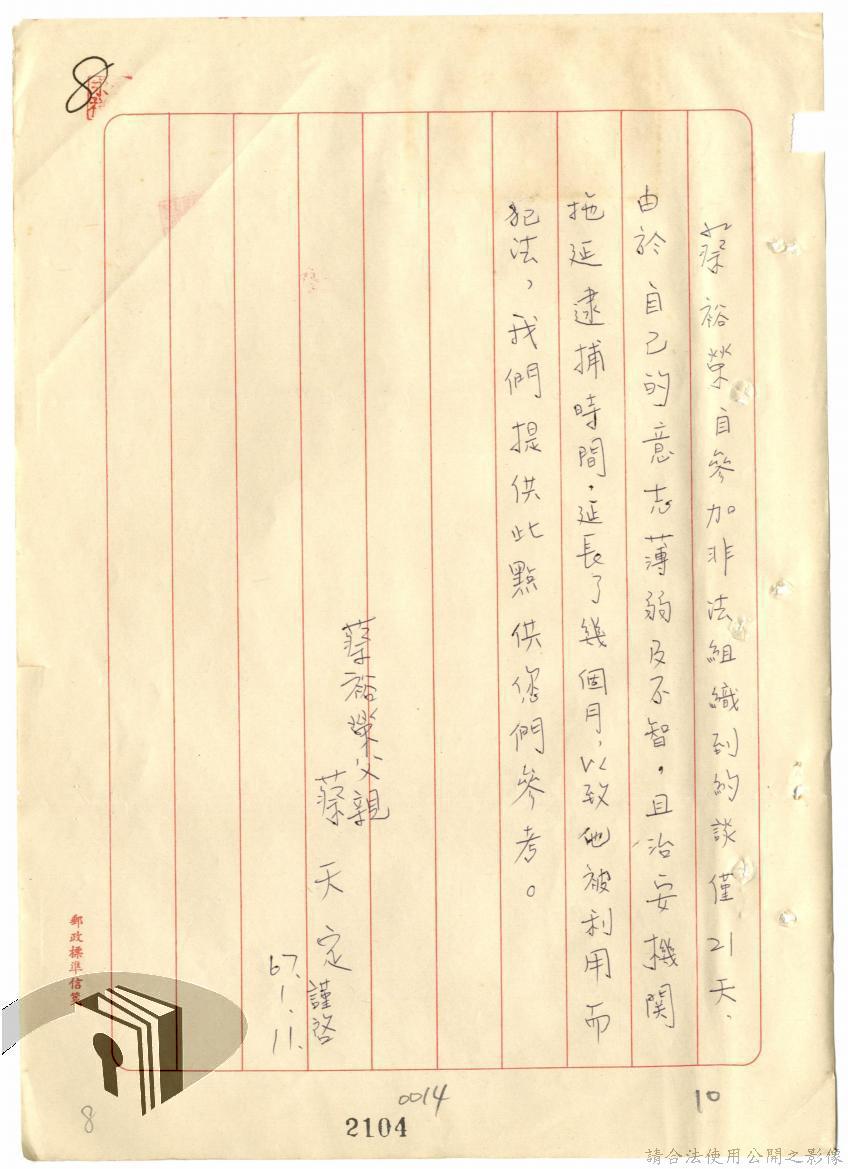 8
蔡裕榮自參加非法組織到約談僅21天,
由於自己的意志薄弱及不智,且治安機關
拖延逮捕時間,延長了幾個月,以致他被利用而
犯法,我們提供此點供您們參考。
蔡裕榮父親
蔡天定 謹啓
67.1.11.
郵政標準信箋
8
0014
2104
10
請合法使用公開之影像